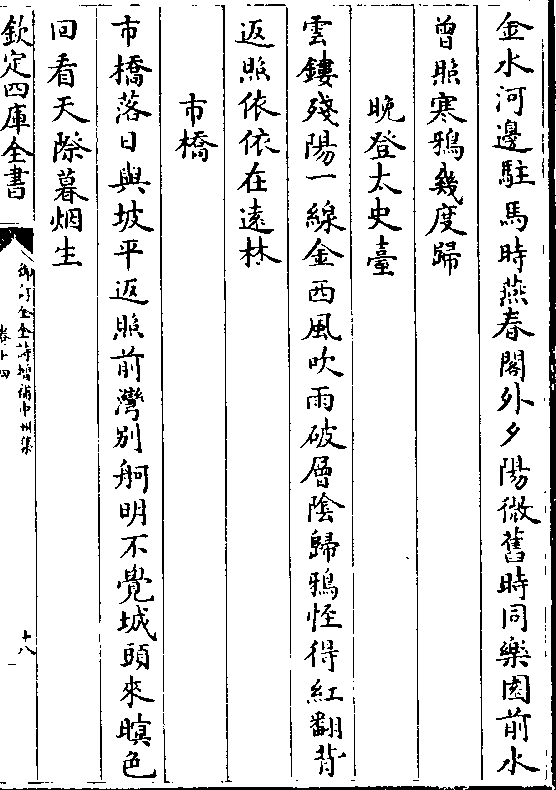 金水河邊駐馬時燕春閣外夕陽微舊時同樂園前水
曾照寒鴉幾度歸
晚登太史臺
雲鏤殘陽一線金西風吹雨破層陰歸鴉怪得紅翻背
返照依依在遠林
市橋
市橋落日與坡平返照前灣別舸明不覺城頭來暝色
回看天際暮烟生
欽定四庫全書
御訂全金詩增補中州集
卷十四
十八